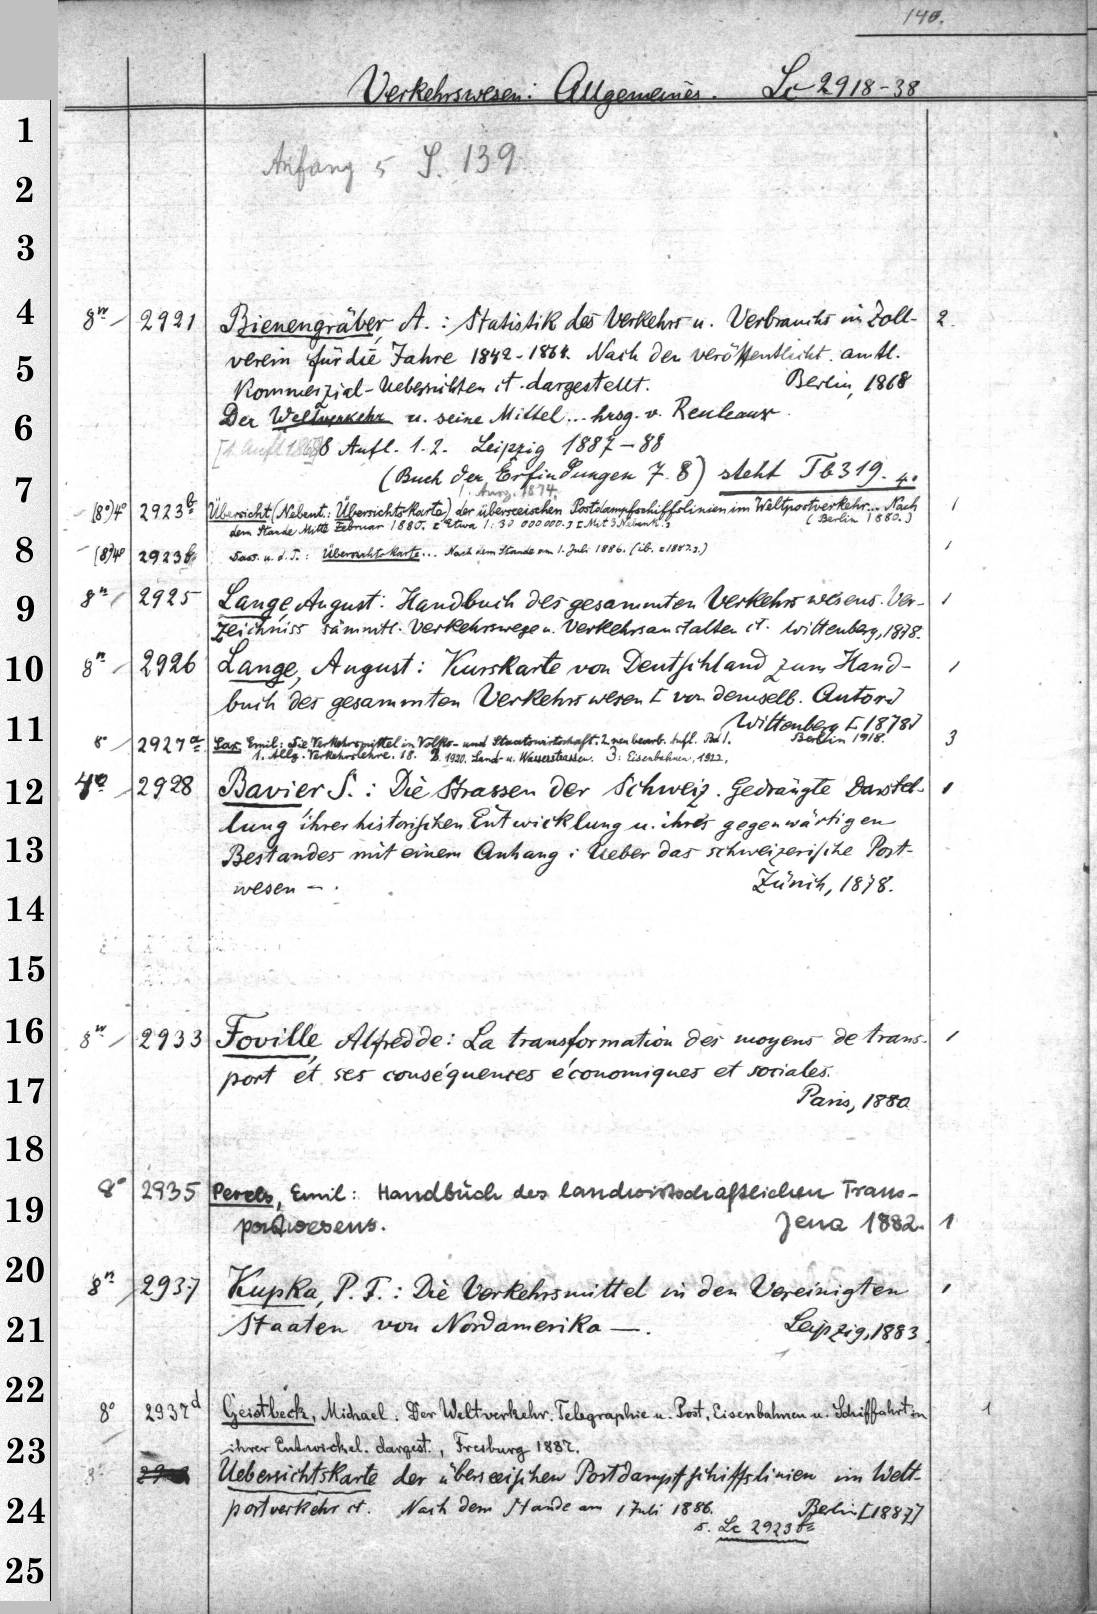 140.
Verkehrswesen: Allgemeines. Lc 2918-38
1
Anfang s S. 139
2
3
4
8° 2921 Bienengräber, A.: Statistik des Verkehrs u. Verbrauchs im Zoll- 2.
verein für die Jahre 1842-1864. Nach den veröffentlicht. amtl.
5
Kommerzial-Uebersichten et. dargestellt. Berlin, 1868
Der Weltverkehr u. seine Mittel... hrsg. v. Reuleaux.
6
8 Aufl. 1.2. Leipzig 1887-88
(Buch der Erfindungen 7.8) steht Tb 319. 4.
7
1. Ausg. 1874.
(8°)4° 2923b Übersicht (Nebent.: Übersichtskarte) der überseeischen Postdampfschiffslinien im Weltpostverkehr... Nach 1
dem Stande Mitte Februar 1880. [Etwa 1:30 000 000.] [Mit 3 Nebenk.] (Berlin 1880.)
8
(8°)4° 2923 Dass. u. d. T.: Übersichtskarte... Nach dem Stande vom 1. Juli 1886. (ib. [1887.]) 1
9
8° 2925 Lange, August: Handbuch des gesammten Verkehrswesens. Ver- 1
zeichniss sämmtl. Verkehrswege u. Verkehrsanstalten et. Wittenberg, 1878.
10
8° 2926 Lange, August: Kurskarte von Deutschland zum Hand- 1
buch des gesammten Verkehrswesen [von demselb. Autor]
Wittenberg [1878]
11
8° 2927a Sax, Emil: Die Verkehrsmittel in Volks- und Staatswirtschaft. 2. neu bearb. Aufl. Bd 1. Berlin 1918. 3
1. Allg. Verkehrslehre. 18. 2. 1920. Land- u. Wasserstrassen. 3: Eisenbahnen. 1922.
12
4° 2928 Bavier S.: Die Strassen der Schweiz. Gedrängte Darstel- 1
lung ihrer historischen Entwicklung u. ihres gegenwärtigen
13
Bestandes mit einem Anhang: Ueber das schweizerische Post-
wesen -. Zürich, 1878.
14
15
16
8° 2933 Foville, Alfred de: La transformation des moyens de trans- 1
port et ses conséquences économiques et sociales.
17
Paris, 1880
18
8° 2935 Perels, Emil: Handbuch des landwirtschaftlichen Trans-
19
portwesens. Jena 1882. 1
20
8° 2937 Kupka, P. F.: Die Verkehrsmittel in den Vereinigten 1
21
Staaten von Nordamerika —. Leipzig, 1883.
22
8° 2937d Geistbeck, Michael. Der Weltverkehr. Telegraphie u. Post, Eisenbahnen u. Schiffahrt in 1
23
ihrer Entwickel. dargest., Freiburg 1887.
Uebersichtskarte der überseeischen Postdampfschiffslinien im Welt-
24
postverkehr et. Nach dem Stande am 1 Juli 1886. Berlin [1887]
s. Lc 2923
25